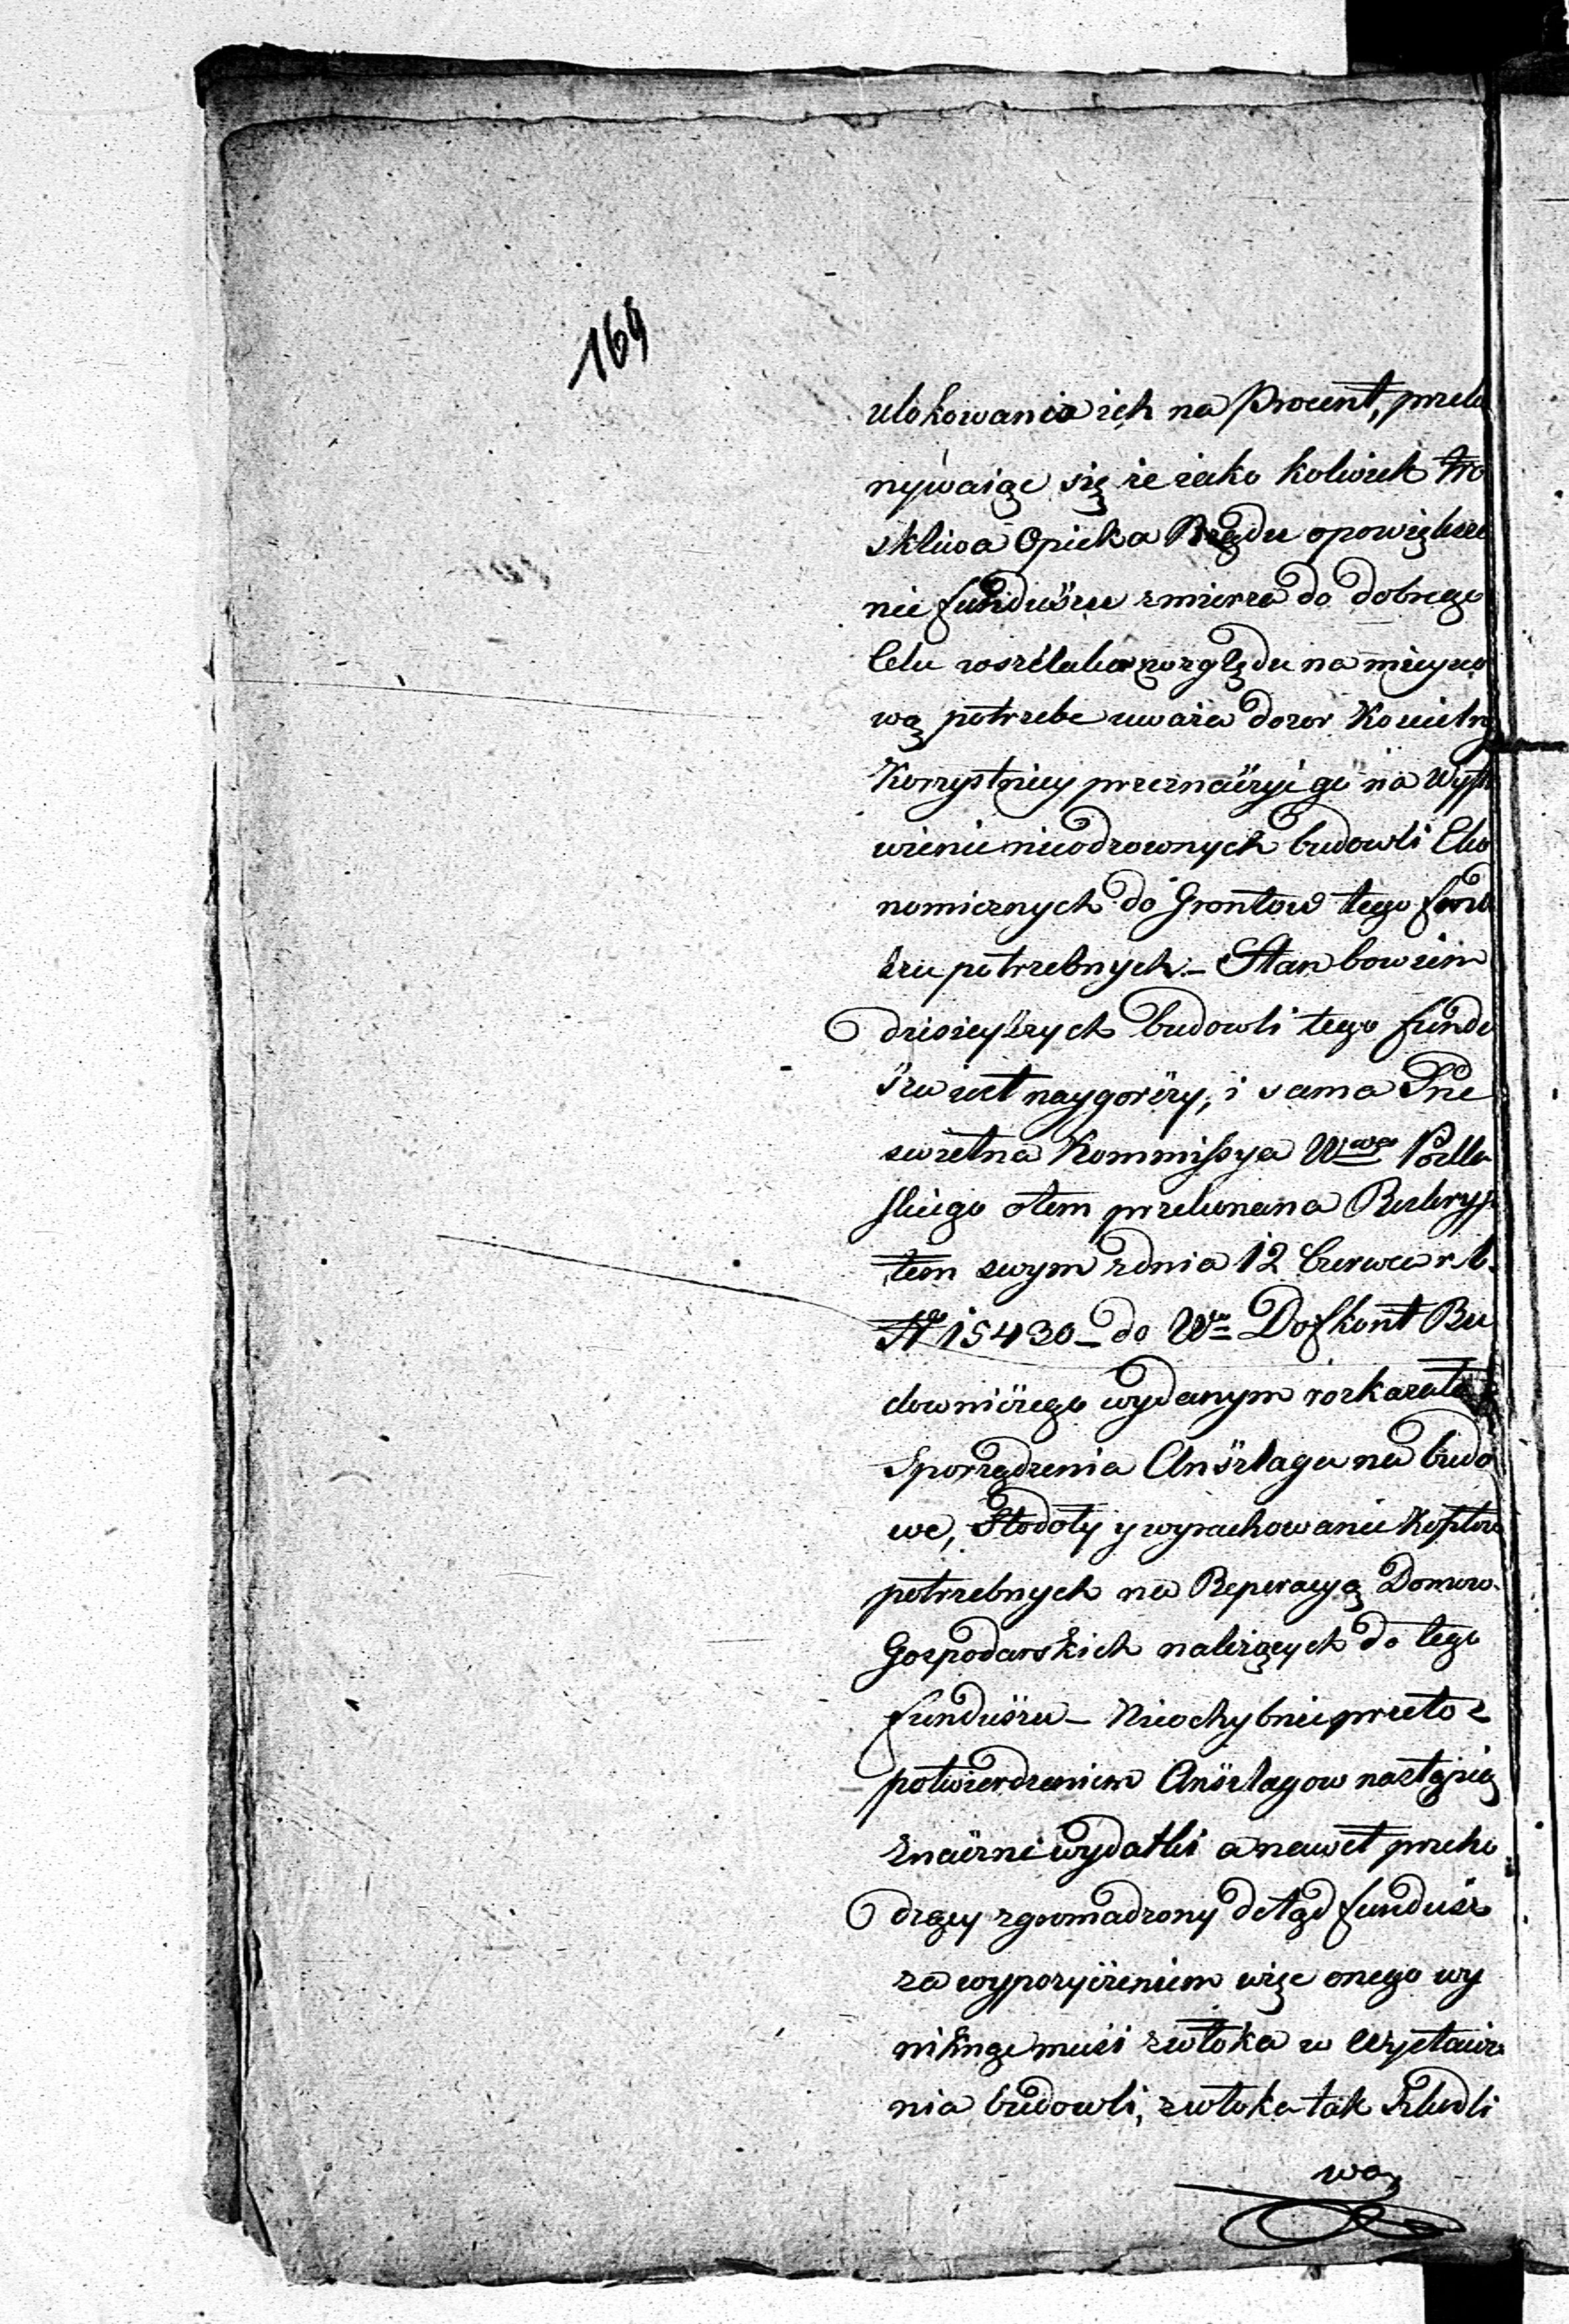 164
ulokowania ich na Procent, przeko
nywaiąc się że iako koliwiek tro
skliwa Opieka Rządu o powiększe
nie funduszu zmierza do dobrego
Celu wszelako względu na mieysco
wą potrzebe uważa dozor Kościelny
Korzystniey przeznaczyć go na Wysta
wienie nieodzownych budowli Eko
nomicznych do Grontow tego fundu
szu potrzebnych – Stan bowiem
dzisieyszych budowli tego fundu
szu iest naygorszy, i sama Prze
swietna Kommissya Wwa Podla
skiego o tem przekonana Reskryp
tem swym z dnia 12 Czerwca r. b.
No 15430 – do Wo Dofkont Bu
downiczego wydanym rozkazała
Sporządzenia Anszlagu na budo
we, Stodoły y wyrachowanie Kosztow
potrzebnych na Reperacyą Domow
Gospodarskich należących do tego
funduszu – Niechybnie przeto z
potwierdzeniem Anszlagow nastąpią
znaczne wydatki a nawet przecho
dzący zgromadzony dotąd fundusz
za wypożyczeniem więc onego wy
niknąć musi zwłoka w Wystawie
nia budowli, zwłoka tak Szkodli
wa